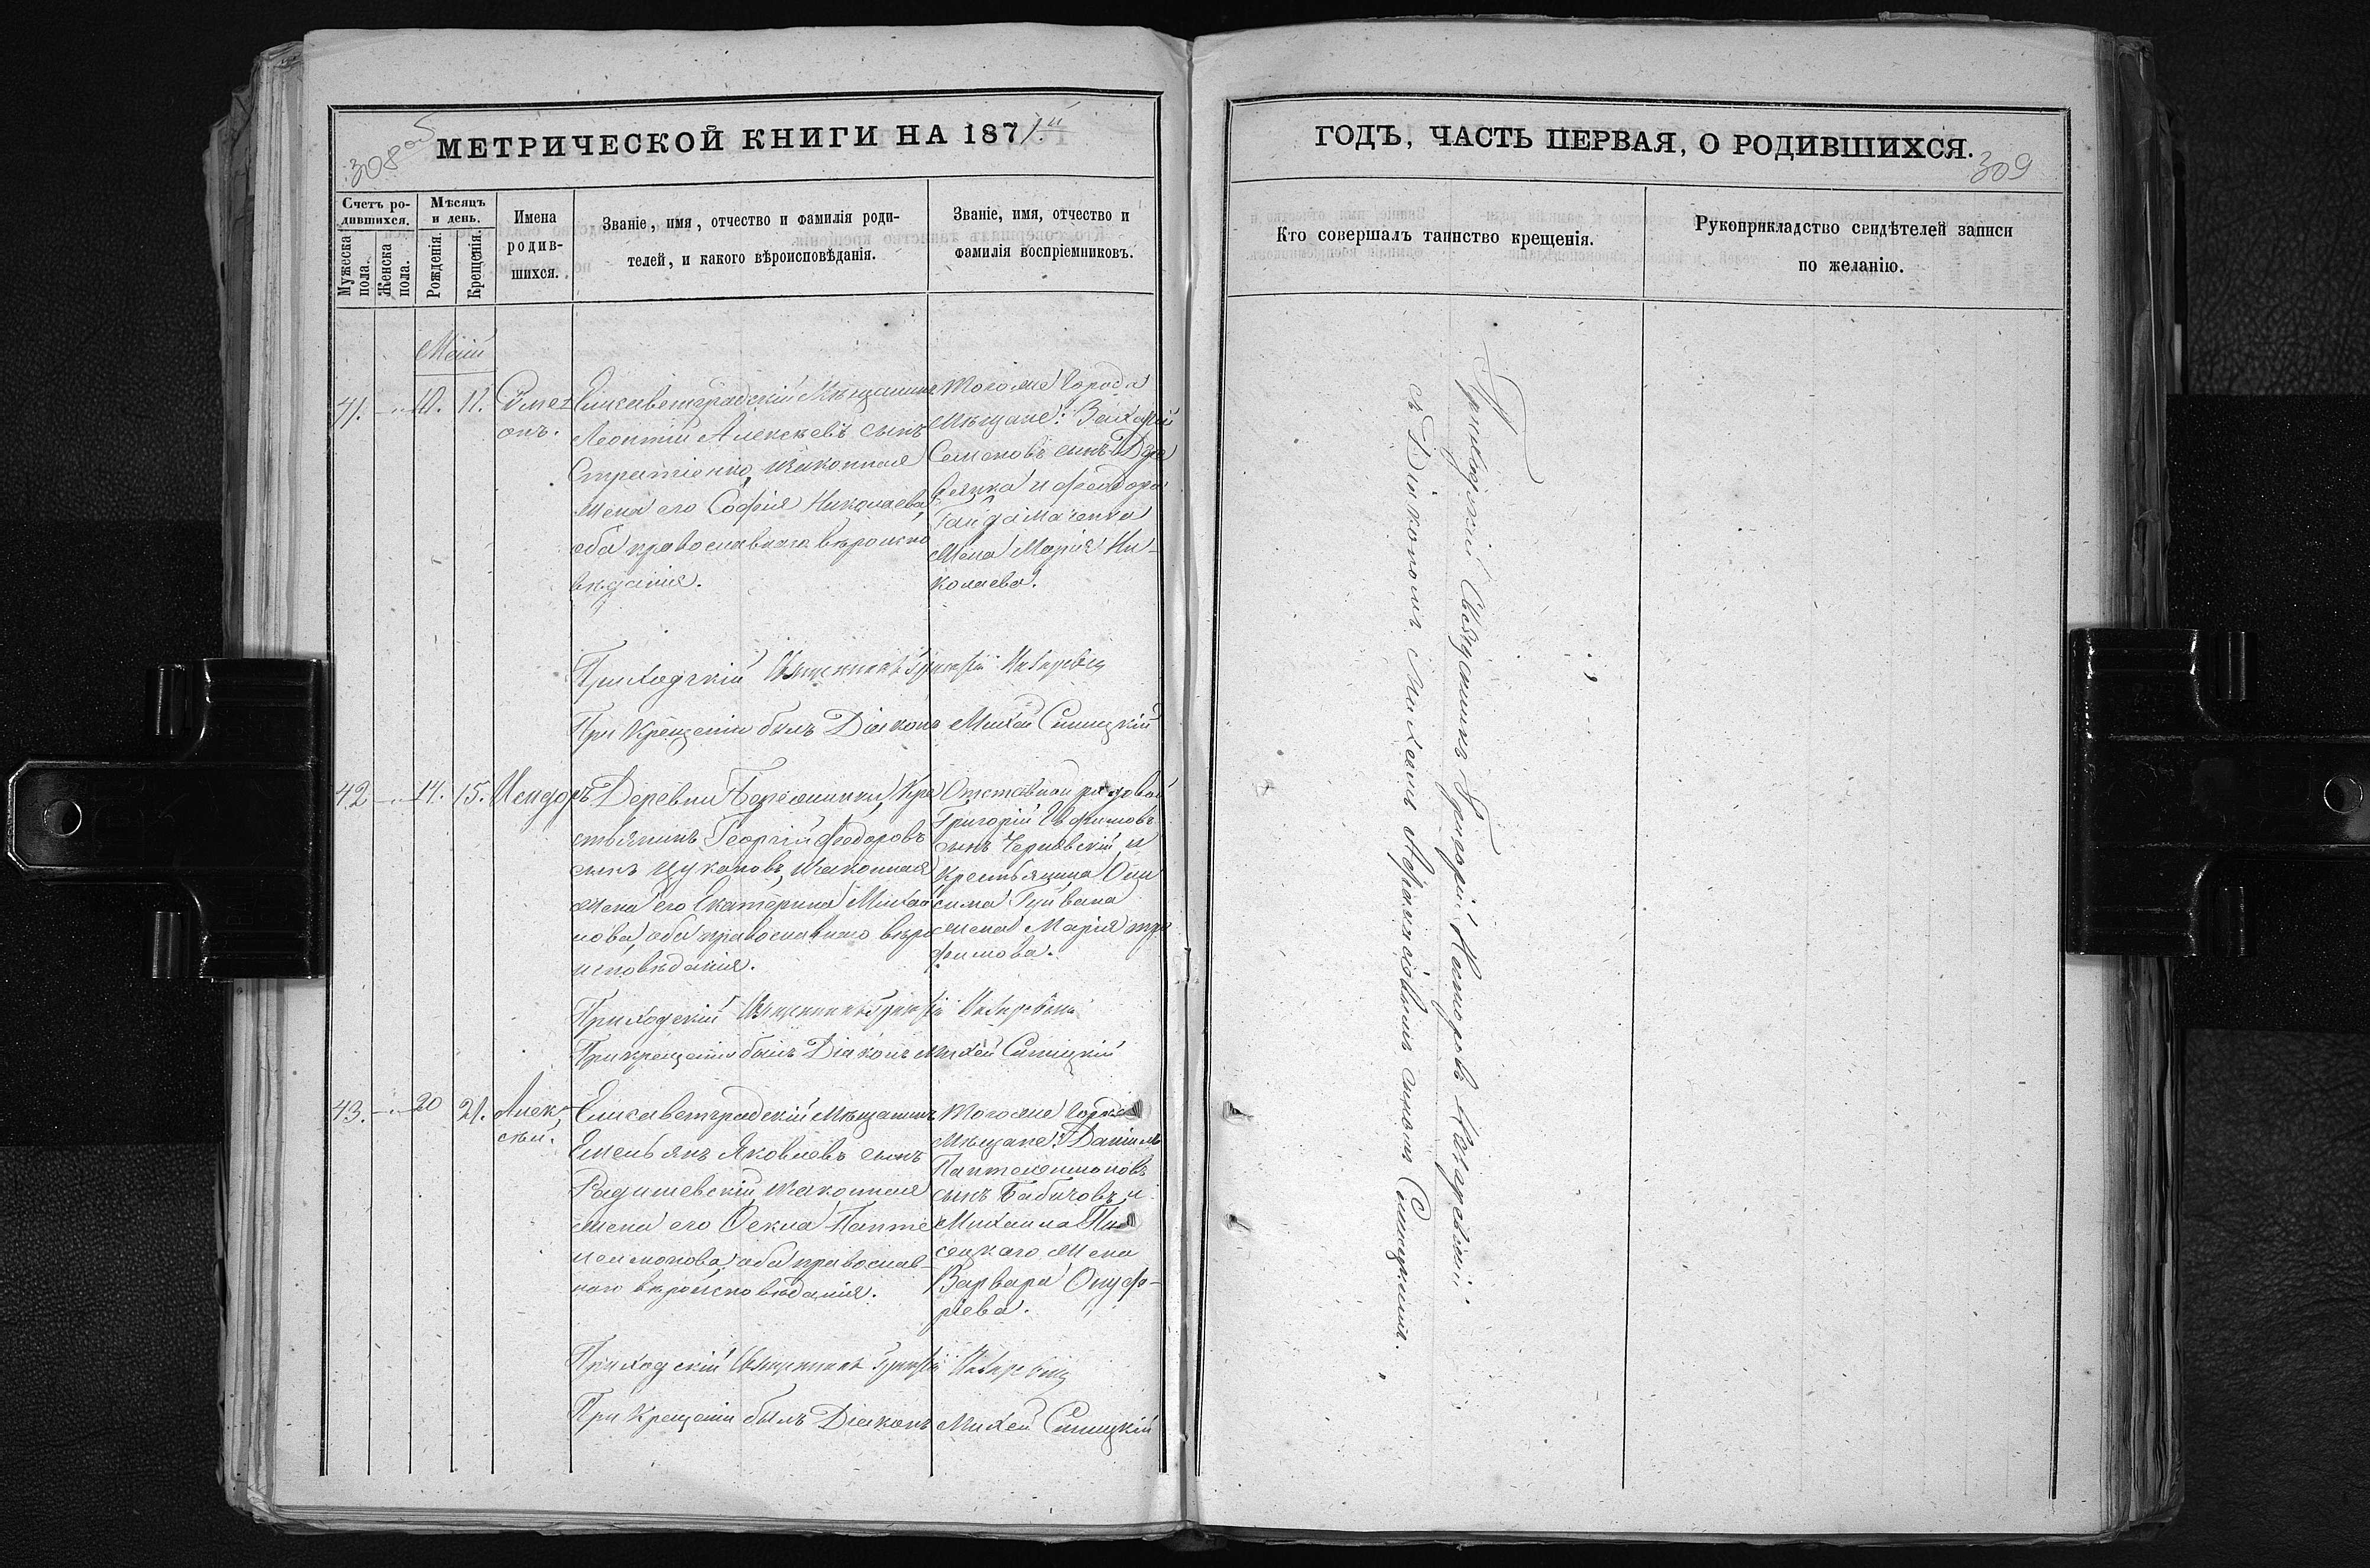 308 об
МЕТРИЧЕСКОЙ КНИГИ НА 1871й
Счетъ ро-
дившихся.
Мужеска
пола.
Женска
пола.
Мѣсяцъ
и день.
Рожденія.
Крещенія.
Имена
родив-
шихся.
Званіе, имя, отчество и фамилія роди-
телей, и какого вѣроисповѣданія.
Званіе, имя, отчество и
фамилія воспріемниковъ.
Маій
41.
11.
Симе-
онъ.
Елисаветградскій Мѣщанинъ
Леонтій Алексѣевъ сынъ
законная
жена его Софія Николаева,
оба православнаго вѣроиспо
вѣданія.
Тогоже города
мѣщане: Захарій
Семеновъ сынъ Дере
вянка и Феодора
Гайдамаченка
жена Марія Ни-
колаева.
Приходскій Священникъ Григорій
При Крещеніи былъ Діаконъ Михей Синицкій
42
14.
15.
Исидоръ
Деревни Бережинки, Кре
стьянинъ Георгій Феодоровъ
сынъ Цукановъ, законная
жена его Екатерина Михай
лова, оба православнаго вѣро
исповѣданія.
Отставной рядовой
Григорій
сынъ Чернявскій и
крестьянина Они
сима Гуйвана
жена Марія Тро
фимова.
Приходскій Священникъ Григорій
При крещеніи былъ Діаконъ Михей Синицкій
43.
20
21.
Алек-
сѣй.
Елисаветградскій Мѣщанинъ
Емельянъ Яковлевъ сынъ
законная
жена его Ѳекла Панте
леимонова, оба православ-
наго вѣроисповѣданія.
Тогоже города
Мѣщане: Даніилъ
Пантелеимоновъ
сынъ Бабичовъ и
Михаила
жена
Варвара Онуф-
ріева.
Приходскій Священникъ Григорій
При Крещеніи былъ Діаконъ Михей Синицкій
ГОДЪ, ЧАСТЬ ПЕРВАЯ, О РОДИВШИХСЯ.
309
Кто совершалъ таинство крещенія.
Рукоприкладство свидѣтелей записи
по желанію.
Приходскій Священникъ Григорій Несторовъ
съ Діакономъ Михеемъ сыномъ Синицкимъ.